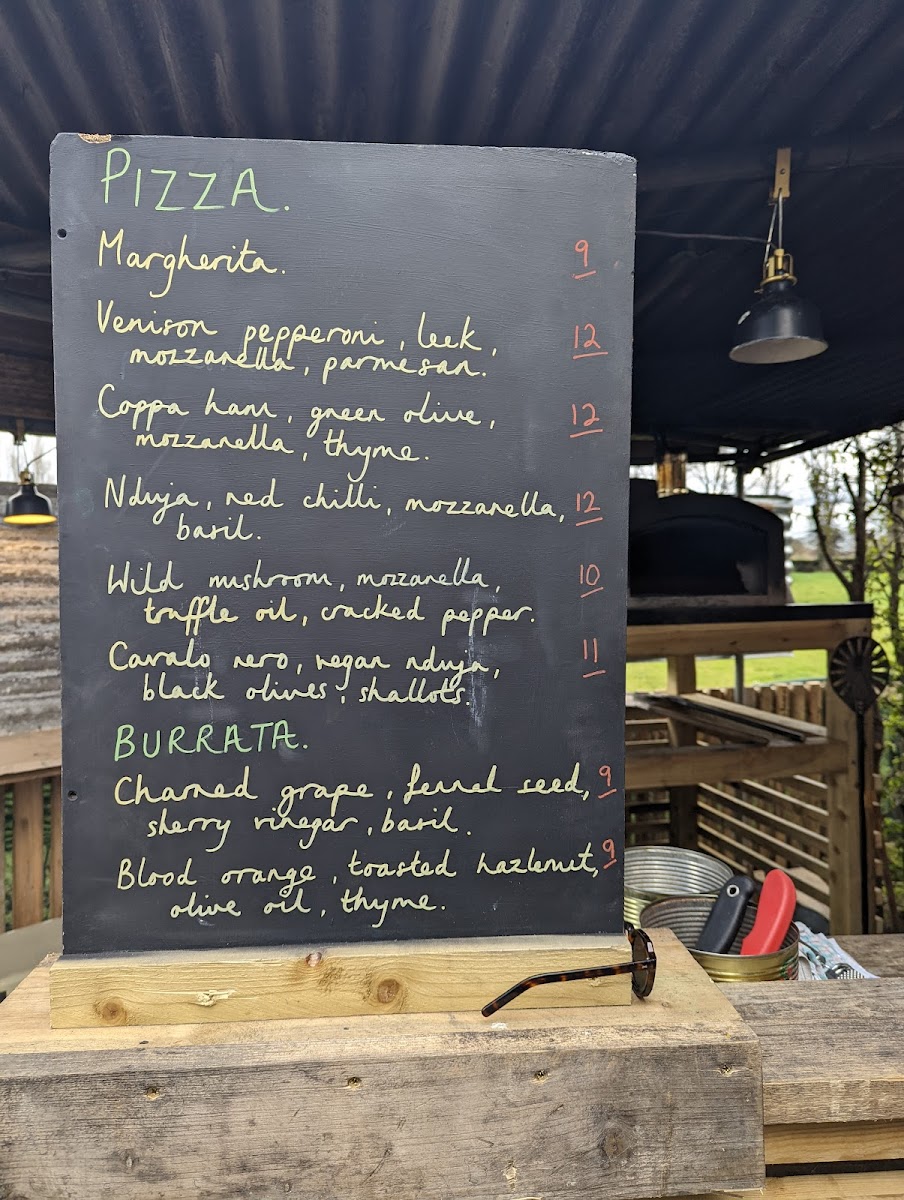 PIZZA.
Margherita. 9
Venison pepperoni, leek, 12
mozzarella, parmesan.
Coppa ham, green olive, 12
mozzarella, thyme.
Nduja, red chilli, mozzarella, 12
basil.
Wild mushroom, mozzarella, 10
truffle oil, cracked pepper.
Cavalo nero, vegan nduja, 11
black olives, shallots.
BURRATA.
Charred grape, fennel seed, 9
sherry vinegar, basil.
Blood orange, toasted hazlenut, 9
olive oil, thyme.